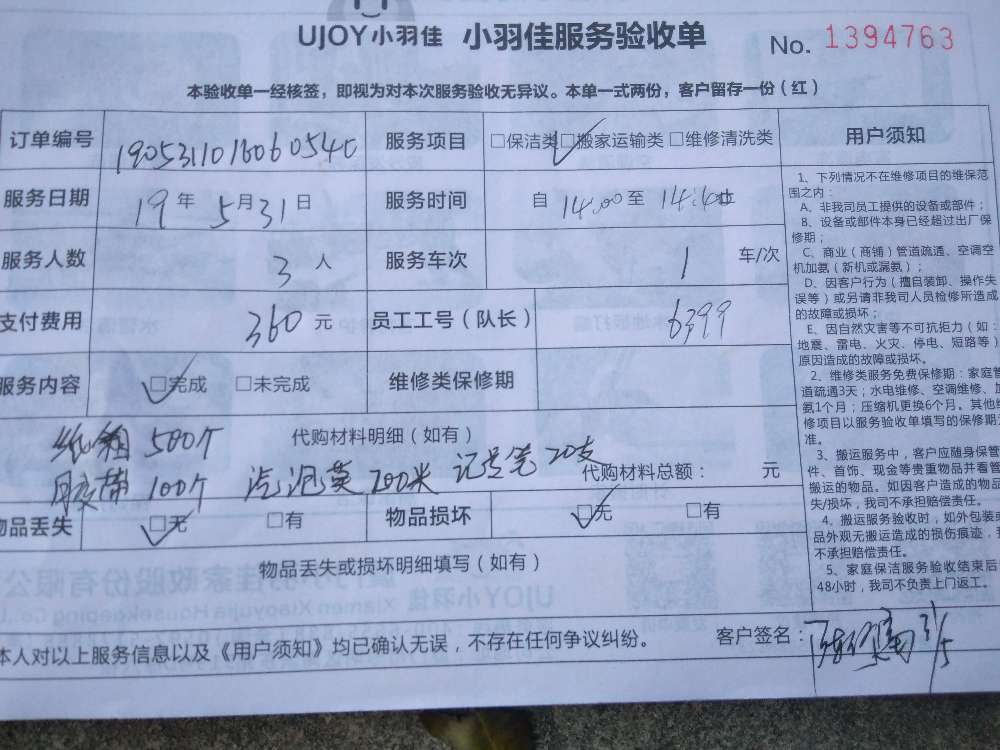 UJOY小羽佳 小羽佳服务验收单 No. 1394763
本验收单一经核签，即视为对本次服务验收无异议。本单一式两份，客户留存一份（红）
订单编号 190531101606054C 服务项目 □保洁类 □搬家运输类 □维修清洗类
服务日期 19 年 5 月 31 日 服务时间 自 14:00 至 14:40 止
服务人数 3 人 服务车次 1 车/次
支付费用 360 元 员工工号（队长） 6399
服务内容 □完成 □未完成 维修类保修期
纸箱 500个 代购材料明细（如有）
胶带 100个 汽泡英 200米 记号笔 20支 代购材料总额： 元
物品丢失 □无 □有 物品损坏 □无 □有
物品丢失或损坏明细填写（如有）
本人对以上服务信息以及《用户须知》均已确认无误，不存在任何争议纠纷。 客户签名： 31/5
用户须知
1、下列情况不在维修项目的维保范
围之内：
A、非我司员工提供的设备或部件；
B、设备或部件本身已经超过出厂保
修期；
C、商业（商铺）管道疏通、空调空
机加氨（新机或漏氨）；
D、因客户行为（擅自装卸、操作失
误等）或另请非我司人员检修所造成
的故障或损坏；
E、因自然灾害等不可抗拒力（如：
地震、雷电、火灾、停电、短路等）
原因造成的故障或损坏。
2、维修类服务免费保修期：家庭管
道疏通3天；水电维修、空调维修、加
氨1个月；压缩机更换6个月。其他维
修项目以服务验收单填写的保修期为
准。
3、搬运服务中，客户应随身保管
件、首饰、现金等贵重物品并看管
搬运的物品。如因客户造成的物品
失/损坏，我司不承担赔偿责任。
4、搬运服务验收时，如外包装或
品外观无搬运造成的损伤痕迹，我
不承担赔偿责任。
5、家庭保洁服务验收结束后
48小时，我司不负责上门返工。